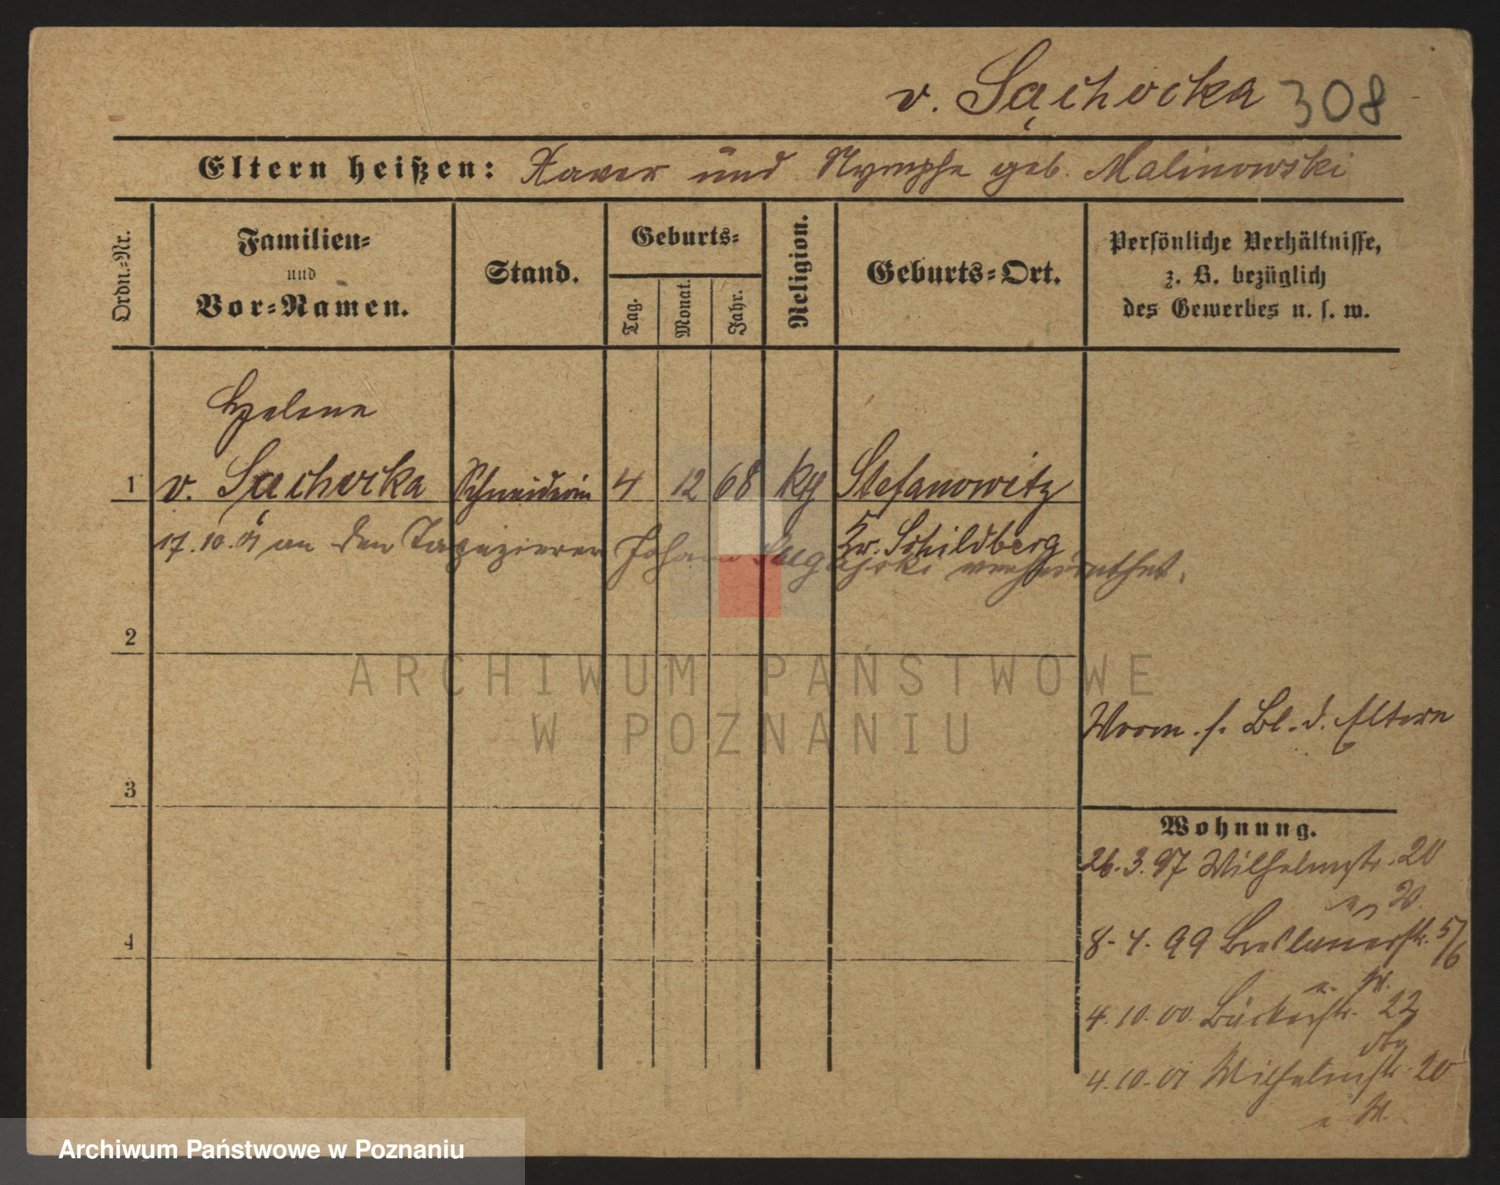 v. Sąchocka 308
Eltern heißen: Xaver und Nymphe geb. Malinowski
Ordn.-Nr.
Familien-
und
Vor-Namen.
Stand.
Geburts-
Tag.
Monat.
Jahr.
Religion.
Geburts-Ort.
Persönliche Verhältnisse,
z. B. bezüglich
des Gewerbes u. s. w.
Helene
1 v. Sąchocka Schneiderin 4 12 68 kg Stefanowitz
Kr. Schildberg
17.10.01 an den Tapezierer Johann verheirathet.
2
Worm. s. Bl. d. Eltern
3
Wohnung.
26.3.97 Wilhelmstr. 20
8.4.99 Breslauerstr. 5/6
4
4.10.00 Bäckerstr. 22
4.10.01 Wilhelmstr. 20
ARCHIWUM PAŃSTWOWE
W POZNANIU
Archiwum Państwowe w Poznaniu